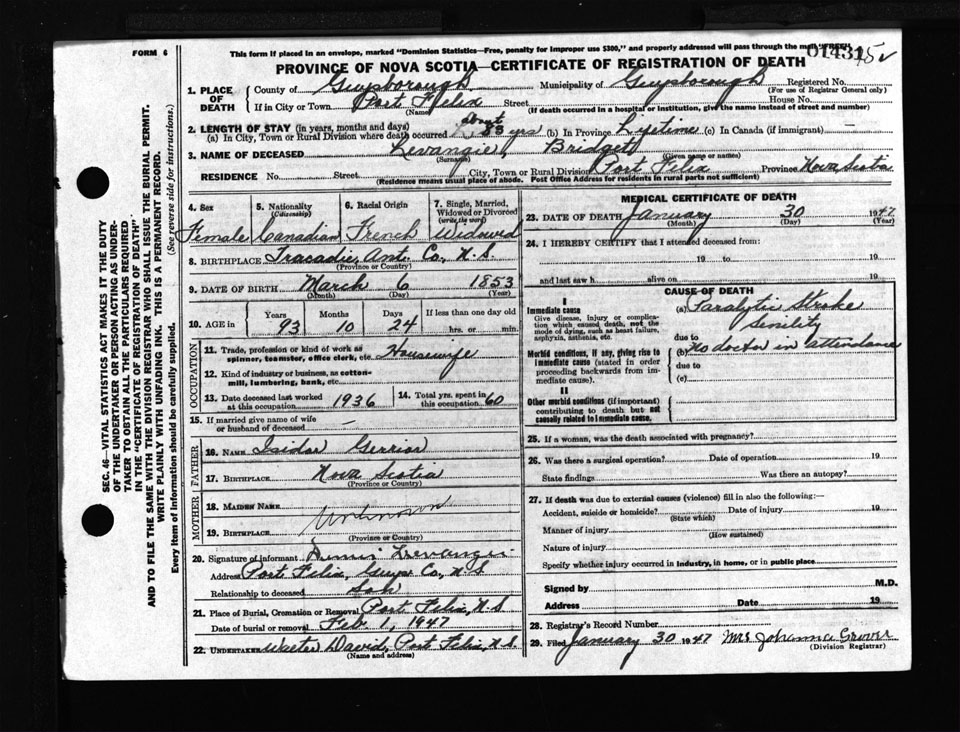 FORM 6
This form if placed in an envelope, marked "Dominion Statistics—Free, penalty for improper use $300," and properly addressed will pass through the mail "FREE"
PROVINCE OF NOVA SCOTIA—CERTIFICATE OF REGISTRATION OF DEATH
1. PLACE OF DEATH
County of Guysborough Municipality of Guysborough Registered No.
(For use of Registrar General only)
If in City or Town Port Felix Street House No.
(Name) (If death occurred in a hospital or institution, give the name instead of street and number)
2. LENGTH OF STAY (in years, months and days)
(a) In City, Town or Rural Division where death occurred about 83 yrs (b) In Province Lifetime (c) In Canada (if immigrant) —
3. NAME OF DECEASED Levangie, Bridgett
(Surname) (Given name or names)
RESIDENCE No. Street City, Town or Rural Division Port Felix Province Nova Scotia
(Residence means usual place of abode. Post Office Address for residents in rural parts not sufficient)
4. Sex 5. Nationality (Citizenship) 6. Racial Origin 7. Single, Married, Widowed or Divorced (write the word)
Female Canadian French Widowed
8. BIRTHPLACE Tracadie, Ant. Co, N.S.
(Province or Country)
9. DATE OF BIRTH March 6 1853
(Month) (Day) (Year)
10. AGE in Years Months Days If less than one day old
93 10 24 hrs. or min.
OCCUPATION
11. Trade, profession or kind of work as spinner, teamster, office clerk, etc. Housewife
12. Kind of industry or business, as cotton-mill, lumbering, bank, etc.
13. Date deceased last worked at this occupation 1936 14. Total yrs. spent in this occupation 60
15. If married give name of wife or husband of deceased —
FATHER
16. NAME Isidor Gerrior
17. BIRTHPLACE Nova Scotia
(Province or Country)
MOTHER
18. MAIDEN NAME
Unknown
19. BIRTHPLACE
(Province or Country)
20. Signature of informant
Address Port Felix, Guys Co, N S
Relationship to deceased Son
21. Place of Burial, Cremation or Removal Port Felix, N.S
Date of burial or removal Feb. 1, 1947
22. UNDERTAKER Walter David, Port Felix, N.S.
(Name and address)
MEDICAL CERTIFICATE OF DEATH
23. DATE OF DEATH January 30 1947
(Month) (Day)
24. I HEREBY CERTIFY that I attended deceased from:
19 to 19
and last saw h alive on 19
CAUSE OF DEATH
I
Immediate cause
Give disease, injury or complication which caused death, not the mode of dying, such as heart failure, asphyxia, asthenia, etc.
(a) Paralytic Stroke
Senility
due to
Morbid conditions, if any, giving rise to immediate cause (stated in order proceeding backwards from immediate cause).
(b) No doctor in attendance
due to
(c)
II
Other morbid conditions (if important) contributing to death but not causally related to immediate cause.
25. If a woman, was the death associated with pregnancy?
26. Was there a surgical operation? Date of operation 19
State findings Was there an autopsy?
27. If death was due to external causes (violence) fill in also the following:—
Accident, suicide or homicide? Date of injury 19
(State which)
Manner of injury
(How sustained)
Nature of injury
Specify whether injury occurred in industry, in home, or in public place
Signed by M.D.
Address Date 19
28. Registrar's Record Number
29. Filed January 30 1947 Mrs Johanna
(Division Registrar)
SEC. 46—VITAL STATISTICS ACT MAKES IT THE DUTY
OF THE UNDERTAKER OR PERSON ACTING AS UNDER-
TAKER TO OBTAIN ALL THE PARTICULARS REQUIRED
IN THE "CERTIFICATE OF REGISTRATION OF DEATH"
AND TO FILE THE SAME WITH THE DIVISION REGISTRAR WHO SHALL ISSUE THE BURIAL PERMIT.
WRITE PLAINLY WITH UNFADING INK. THIS IS A PERMANENT RECORD.
(See reverse side for instructions.)
Every item of Information should be carefully supplied.